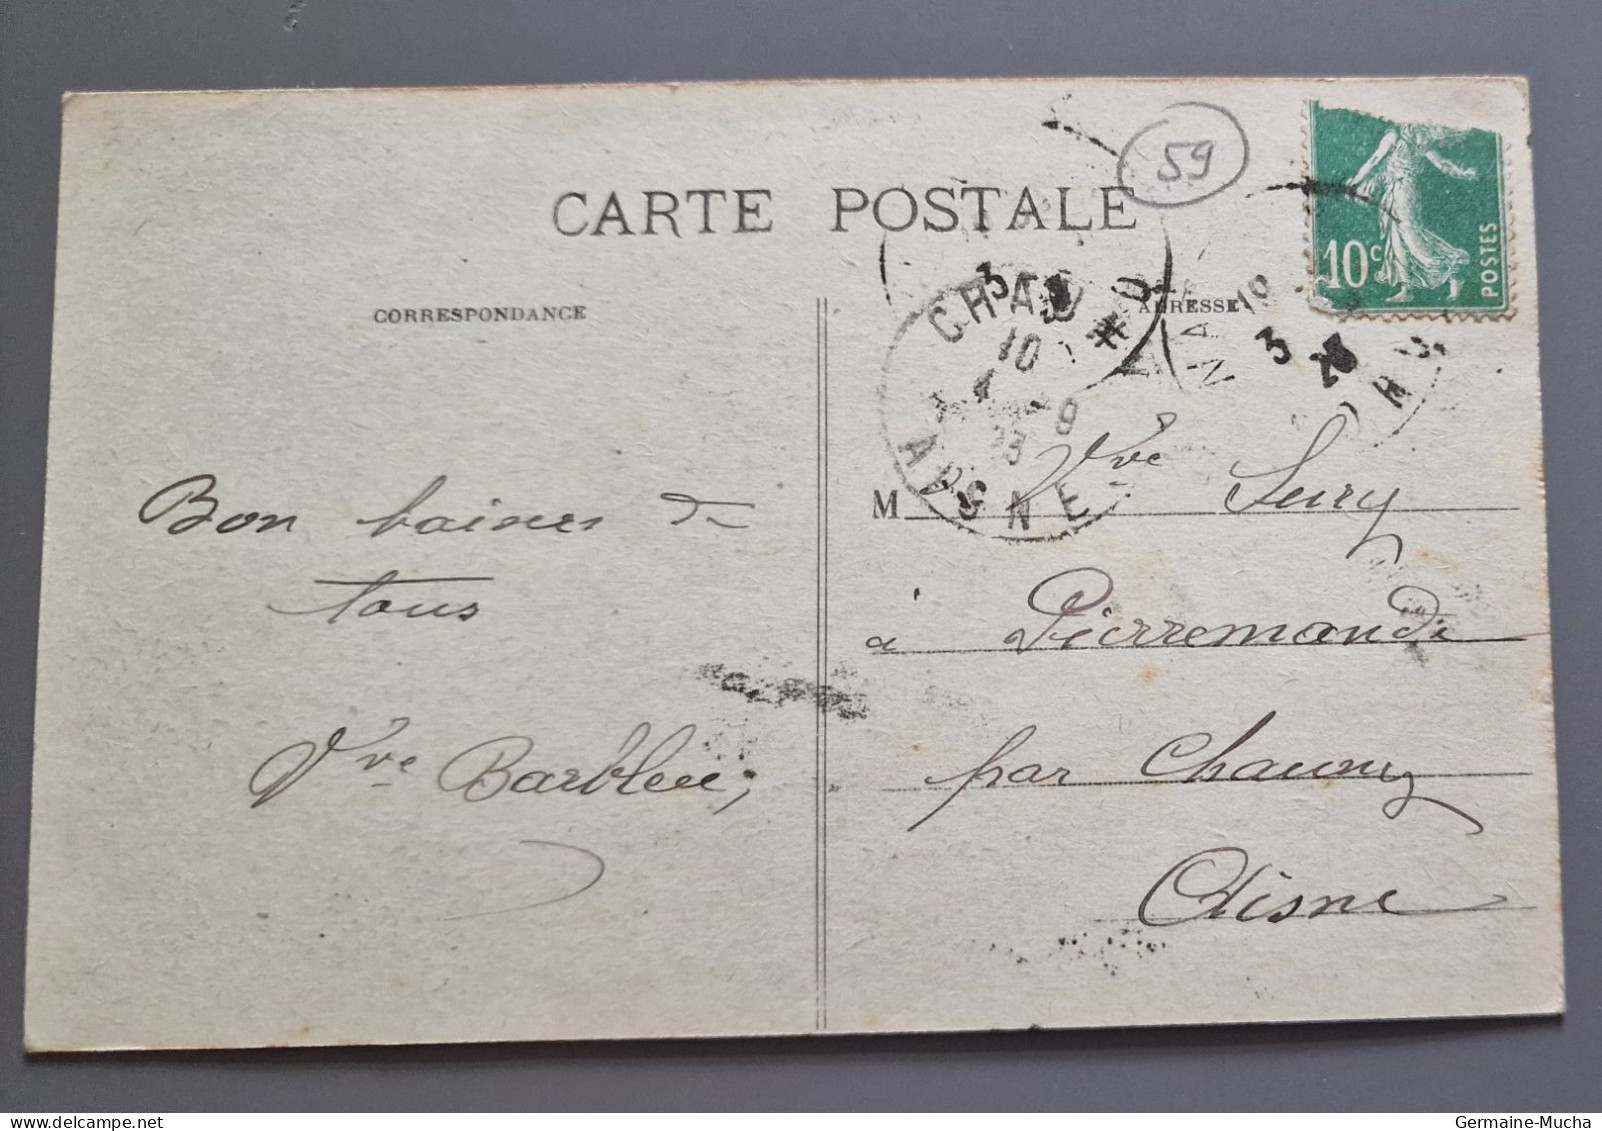 CARTE POSTALE
59
10c
POSTES
CORRESPONDANCE
ADRESSE
CHAUNY
10
4 - 9
23
AISNE
3
Bon baiser de
tous
Vve Barbleu
M Vve
à Pierremande
par Chauny
Aisne
Germaine-Mucha